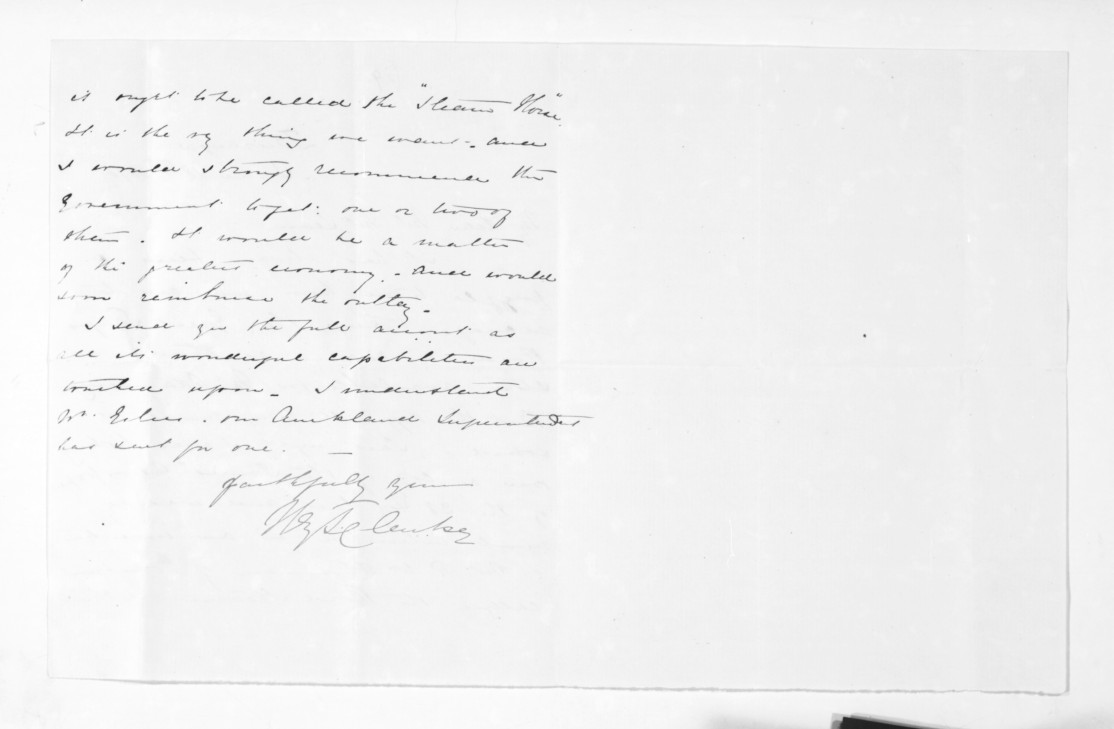 it ought to be called the "Steam Horse".
It is the vy thing we want - and
I would strongly recommend the
Government to get one or two of
them. It would be a matter
of the greatest economy - and would
soon reimburse the outlay -
I send you the full account as
all its wonderful capabilities are
upon - I understand
Mr. our Auckland Superintendent
has sent for one. -
faithfully yours